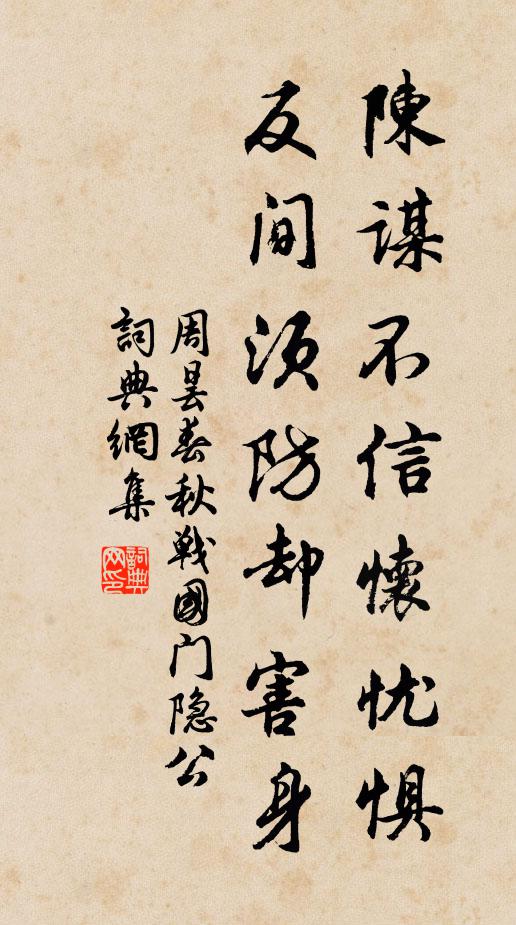 陳謀不信懷忧惧
反间须防却害身
周昙春秋戰國门隐公
詞典網集
詞典網印